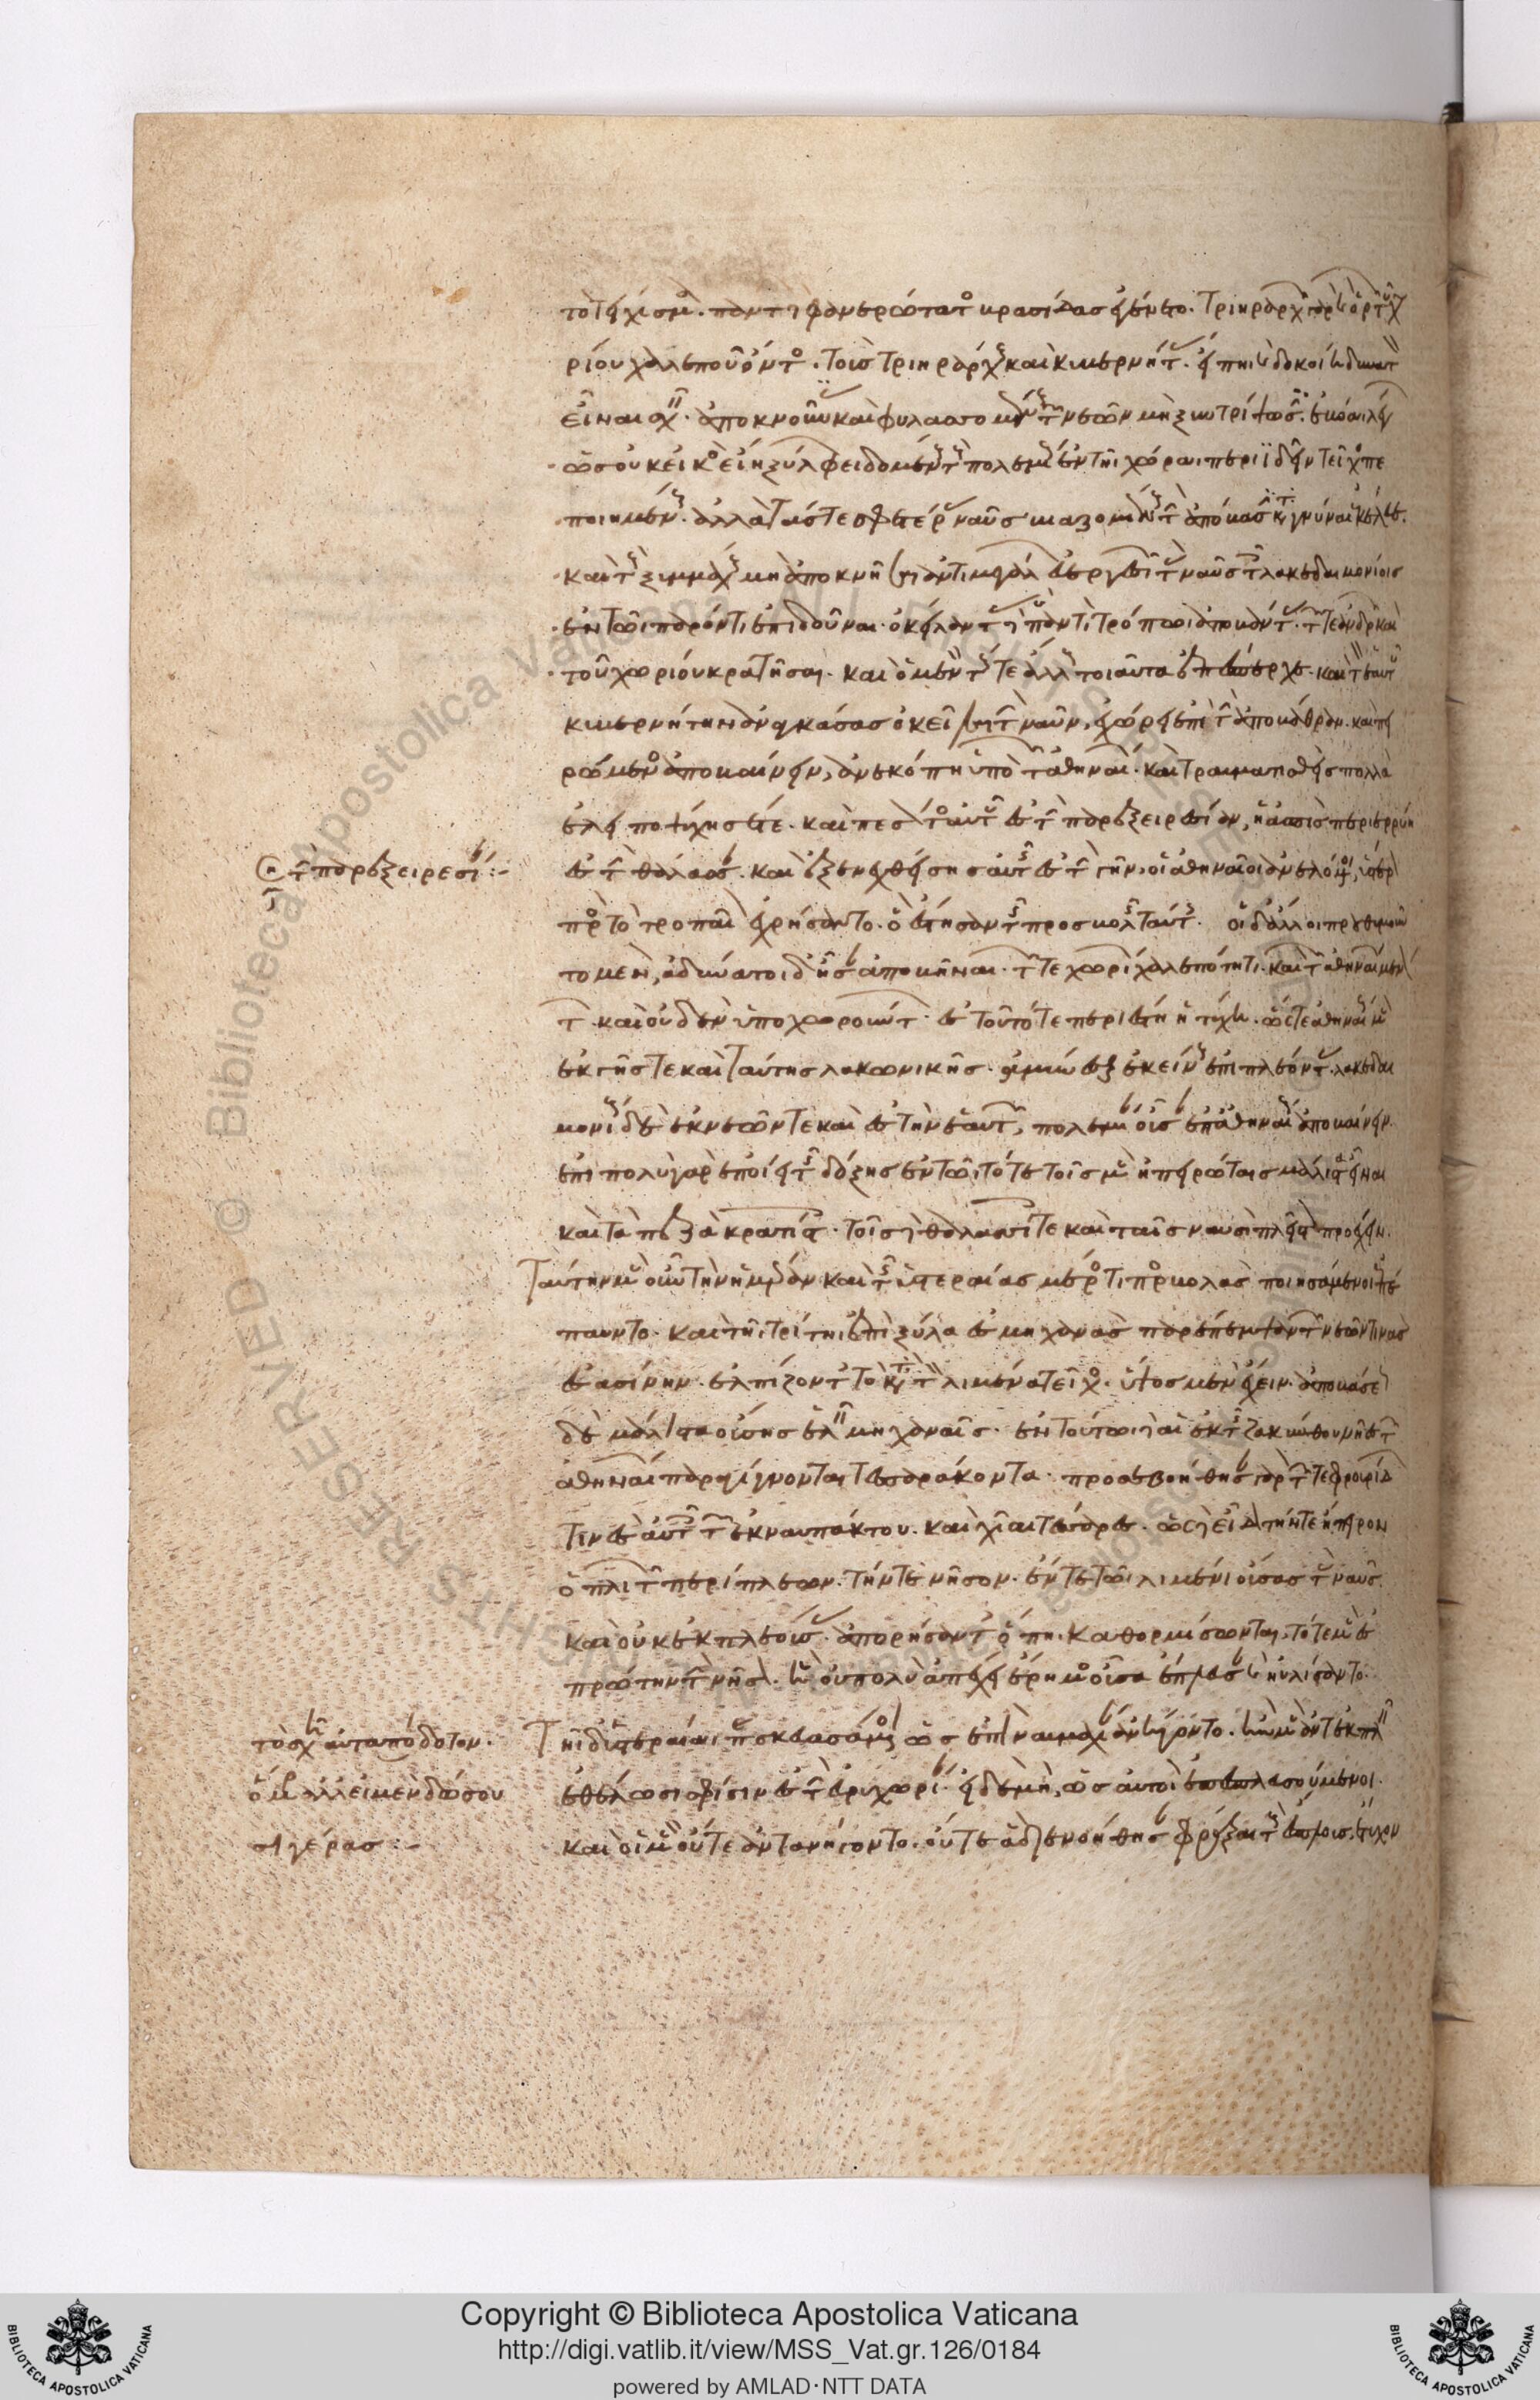 τὸ τείχισμα. πάντων δὲ φανερώτατος βρασίδας ἐγένετο. τριηραρχῶν γὰρ καὶ ὁρῶν τοῦ χω
ρίου χαλεποῦ ὄντος. τοὺς τριηράρχους καὶ κυβερνήτας. εἴ πῃ καὶ δοκοίη δυνατὸν
εἶναι σχεῖν. ἀποκνοῦντας καὶ φυλασσομένους τῶν νεῶν μὴ ξυντρίψωσιν. ἐβόα λέγων
ὡς οὐκ εἰκὸς εἴη ξύλων φειδομένους τοὺς πολεμίους ἐν τῇ χώρᾳ περιϊδεῖν τεῖχος πε
ποιημένους. ἀλλὰ τάς τε σφετέρας ναῦς βιαζομένους τὴν ἀπόβασιν καταγνύναι ἐκέλευε.
καὶ τοὺς ξυμμάχους μὴ ἀποκνῆσαι ἀντὶ μεγάλων εὐεργεσιῶν τὰς ναῦς τοῖς λακεδαιμονίοις
ἐν τῷ παρόντι ἐπιδοῦναι. ὀκείλαντας δὲ καὶ παντὶ τρόπῳ ἀποβάντας. τῶν τε ἀνδρῶν καὶ
τοῦ χωρίου κρατῆσαι. καὶ ὁ μὲν τούς τε ἄλλους τοιαῦτα ἐπέσπερχε. καὶ τὸν ἑαυτοῦ
κυβερνήτην ἀναγκάσας ὀκεῖλαι τὴν ναῦν, ἐχώρει ἐπὶ τὴν ἀποβάθραν. καὶ πει
ρώμενος ἀποβαίνειν, ἀνεκόπη ὑπὸ τῶν ἀθηναίων. καὶ τραυματισθεὶς πολλὰ
ἐλειποψύχησέ τε. καὶ πεσόντος αὐτοῦ ἐς τὴν παρεξειρεσίαν, ἡ ἀσπὶς περιερρύη
ἐς τὴν θάλασσαν. καὶ ἐξενεχθείσης αὐτῆς ἐς τὴν γῆν, οἱ ἀθηναῖοι ἀνελόμενοι, ὕστερον
πρὸς τὸ τροπαῖον ἐχρήσαντο. ὃ ἔστησαν τῆς προσβολῆς ταύτης. οἱ δ' ἄλλοι προὐθυμοῦν
το μὲν, ἀδύνατοι δ' ἦσαν ἀποβῆναι. τῶν τε χωρίων χαλεπότητι. καὶ τῶν ἀθηναίων μενόν
των. καὶ οὐδὲν ὑποχωρούντων. ἐς τοῦτό τε περιέστη ἡ τύχη. ὥστε ἀθηναίους μὲν
ἐκ γῆς τε καὶ ταύτης λακωνικῆς. ἀμύνεσθαι ἐκείνους ἐπιπλέοντας. λακεδαι
μονίους δὲ ἐκ νεῶν τε καὶ ἐς τὴν ἑαυτῶν, πολεμίαν οὖσαν ἐπ' ἀθηναίους ἀποβαίνειν.
ἐπὶ πολὺ γὰρ ἐποίει τῆς δόξης ἐν τῷ τότε τοῖς μὲν ἠπειρώταις μάλιστα εἶναι
καὶ τὰ πεζὰ κρατίστοις. τοῖς δὲ θαλασσίοις τε καὶ ταῖς ναυσὶ πλεῖστα προέχειν.
Ταύτην μὲν οὖν τὴν ἡμέραν καὶ τῆς ὑστεραίας μέρος τι προσβολὰς ποιησάμενοι ἐπέ
παυντο. καὶ τῇ τρίτῃ ἐπὶ ξύλα ἐς μηχανὰς παρέπεμψαν τῶν νεῶν τινὰς
ἐς ἀσίνην. ἐλπίζοντες τὸ κατὰ τὸν λιμένα τεῖχος. ὕψος μὲν ἔχειν. ἀποβάσεως
δὲ μάλιστα οὔσης ἑλεῖν μηχαναῖς. ἐν τούτῳ δὲ αἱ ἐκ τῆς ζακύνθου νῆες τῶν
ἀθηναίων παραγίγνονται τεσσαράκοντα. προσεβοήθησαν γὰρ τῶν τε φρουρίδων
τινὲς αὐτοῖς τῶν ἐκ ναυπάκτου. καὶ χῖαι τέσσαρες. ὡς δὲ εἶδον τήν τε ἤπειρον
ὁπλιτῶν περίπλεων. τήν τε νῆσον. ἔν τε τῷ λιμένι οὔσας τὰς ναῦς
καὶ οὐκ ἐκπλεούσας. ἀπορήσαντες ὅπῃ καθορμίσωνται, τότε μὲν ἐς
πρώτην τὴν νῆσον. ἣ οὐ πολὺ ἀπέχει ἐρῆμος οὖσα ἔπλευσαν καὶ ηὐλίσαντο.
Τῇ δ' ὑστεραίᾳ παρασκευασάμενοι ὡς ἐπὶ ναυμαχίαν ἀνήγοντο. ἢν μὲν ἀντεκπλεῖν
ἐθέλωσι σφίσιν ἐς τὴν εὐρυχωρίαν. εἰ δὲ μὴ, ὡς αὐτοὶ ἐπεσπλευσούμενοι.
καὶ οἱ μὲν οὔτε ἀντανήγοντο. οὔτε ἃ διενοήθησαν φράξαι τοὺς ἔσπλους, ἔτυχον
τὴν παρεξειρεσίαν :-
τὸ σχῆμα ἀνταπόδοτον.
ἀλλ' εἰ μὲν δώσου
σι γέρας :-
Copyright © Biblioteca Apostolica Vaticana
http://digi.vatlib.it/view/MSS_Vat.gr.126/0184
powered by AMLAD·NTT DATA
BIBLIOTECA APOSTOLICA VATICANA
BIBLIOTECA APOSTOLICA VATICANA